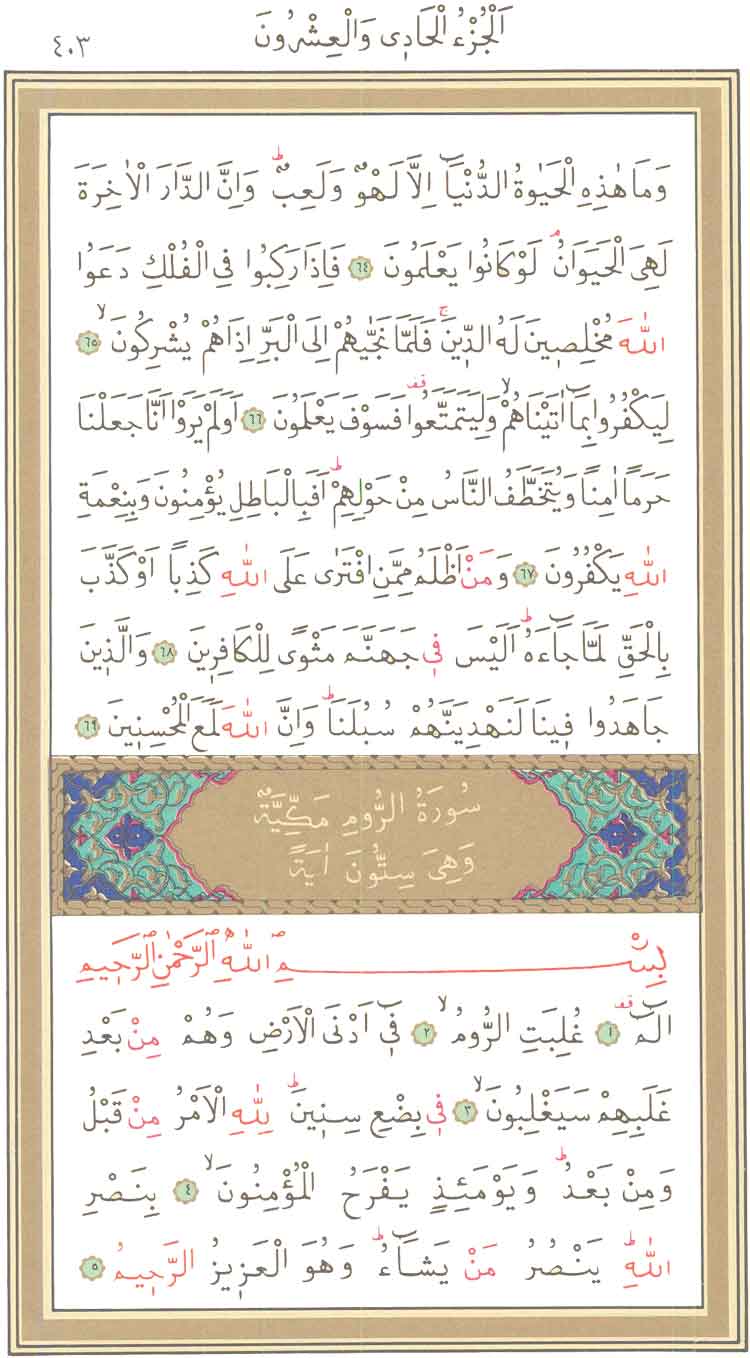 اَلْجُزْءُ الْحَادِى وَالْعِشْرُونَ
٤٠٣
وَمَا هٰذِهِ الْحَيٰوةُ الدُّنْيَٓا اِلَّا لَهْوٌ وَلَعِبٌۜ وَاِنَّ الدَّارَ الْاٰخِرَةَ
لَهِىَ الْحَيَوَانُۢ لَوْ كَانُوا يَعْلَمُونَ ﴿٦٤﴾ فَاِذَا رَكِبُوا فِى الْفُلْكِ دَعَوُا
اللّٰهَ مُخْلِصٖينَ لَهُ الدّٖينَۚ فَلَمَّا نَجّٰيهُمْ اِلَى الْبَرِّ اِذَا هُمْ يُشْرِكُونَۙ ﴿٦٥﴾
لِيَكْفُرُوا بِمَٓا اٰتَيْنَاهُمْۙ وَلِيَتَمَتَّعُوا۠ فَسَوْفَ يَعْلَمُونَ ﴿٦٦﴾ اَوَلَمْ يَرَوْا اَنَّا جَعَلْنَا
حَرَمًا اٰمِنًا وَيُتَخَطَّفُ النَّاسُ مِنْ حَوْلِهِمْۜ اَفَبِالْبَاطِلِ يُؤْمِنُونَ وَبِنِعْمَةِ
اللّٰهِ يَكْفُرُونَ ﴿٦٧﴾ وَمَنْ اَظْلَمُ مِمَّنِ افْتَرٰى عَلَى اللّٰهِ كَذِبًا اَوْ كَذَّبَ
بِالْحَقِّ لَمَّا جَٓاءَهُۜ اَلَيْسَ فٖى جَهَنَّمَ مَثْوًى لِلْكَافِرٖينَ ﴿٦٨﴾ وَالَّذٖينَ
جَاهَدُوا فٖينَا لَنَهْدِيَنَّهُمْ سُبُلَنَاۜ وَاِنَّ اللّٰهَ لَمَعَ الْمُحْسِنٖينَ ﴿٦٩﴾
سُورَةُ الرُّومِ مَكِّيَّةٌ
وَهِىَ سِتُّونَ اٰيَةً
بِسْمِ اللّٰهِ الرَّحْمٰنِ الرَّحٖيمِ
الٓمٓۚ ﴿١﴾ غُلِبَتِ الرُّومُۙ ﴿٢﴾ فٖٓى اَدْنَى الْاَرْضِ وَهُمْ مِنْ بَعْدِ
غَلَبِهِمْ سَيَغْلِبُونَۙ ﴿٣﴾ فٖى بِضْعِ سِنٖينَۜ لِلّٰهِ الْاَمْرُ مِنْ قَبْلُ
وَمِنْ بَعْدُۜ وَيَوْمَئِذٍ يَفْرَحُ الْمُؤْمِنُونَۙ ﴿٤﴾ بِنَصْرِ
اللّٰهِۜ يَنْصُرُ مَنْ يَشَٓاءُۜ وَهُوَ الْعَزٖيزُ الرَّحٖيمُ ﴿٥﴾